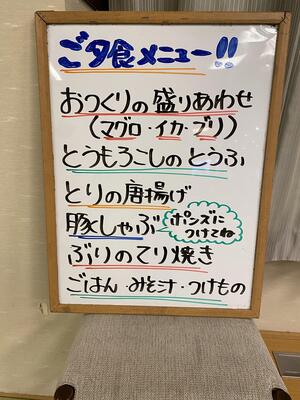 ご夕食メニュー!!
おつくりの盛りあわせ
(マグロ・イカ・ブリ)
とうもろこしのとうふ
とりの唐揚げ
豚しゃぶ
ポンズに
つけてね
ぶりのてり焼き
ごはん・みそ汁・つけもの